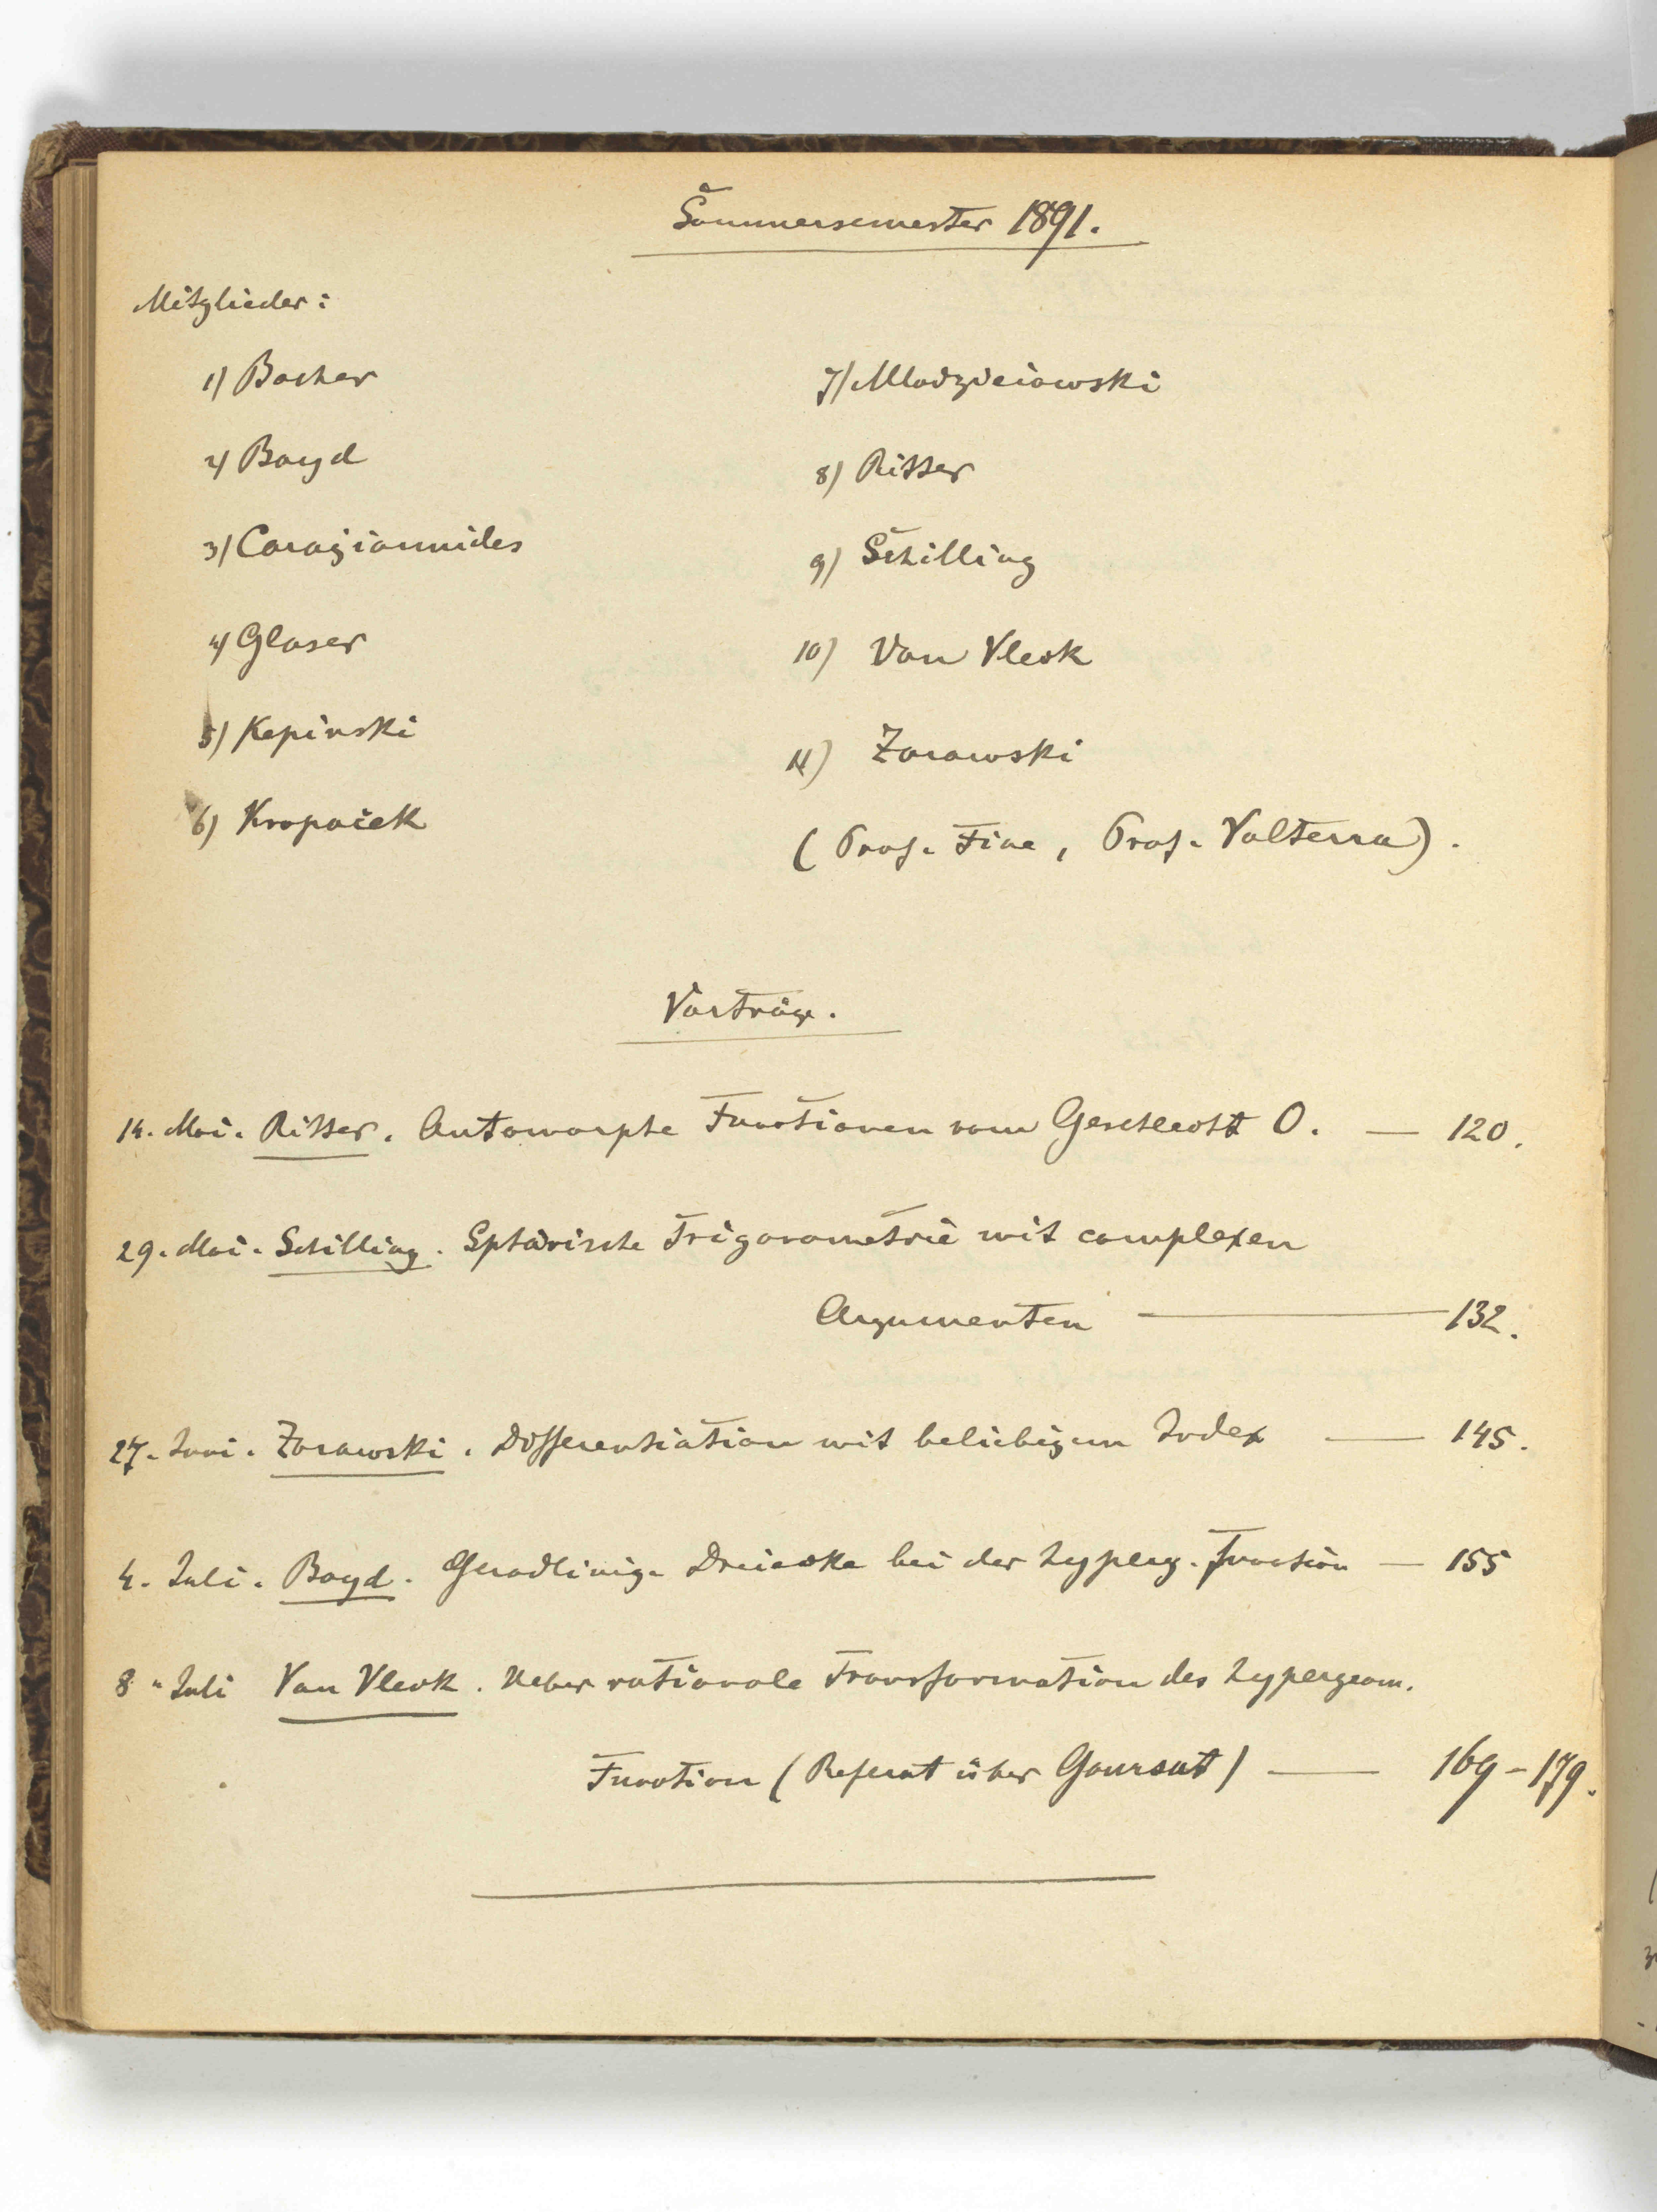 Sommersemester 1891.
Mitglieder:
1) Bocher
2) Boyd
3) Caragiannides
4) Glaser
5) Kepinski
6) Kropaček
7) Mlodzieiowski
8) Ritter
9) Schilling
10) Van Vleck
11) Zorawski
(Prof. Fine, Prof. Volterra).
Vorträge.
14. Mai. Ritter. Automorphe Functionen vom Geschlecht 0. — 120.
29. Mai. Schilling. Sphärische Trigonometrie mit complexen
Argumenten — 132.
27. Juni. Zorawski. Differentiation mit beliebigem Index — 145.
4. Juli. Boyd. Geradlinige Dreiecke bei der hyperg. Function — 155
8 " Juli Van Vleck. Ueber rationale Transformation der hypergeom.
Function (Referat über Goursat) — 169-179.